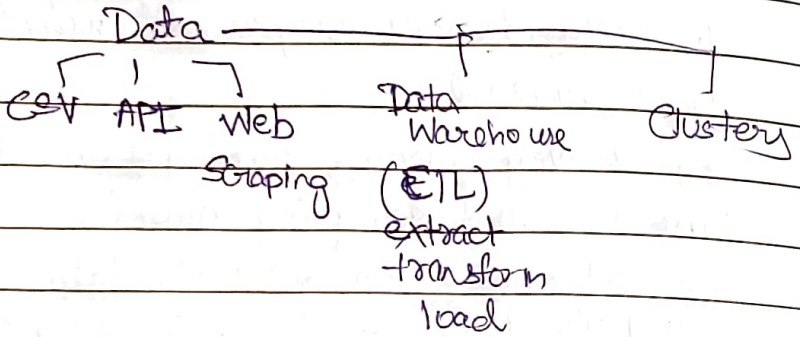 Data
CSV API Web Scraping
Data Warehouse
(ETL)
extract
transform
load
Clusters